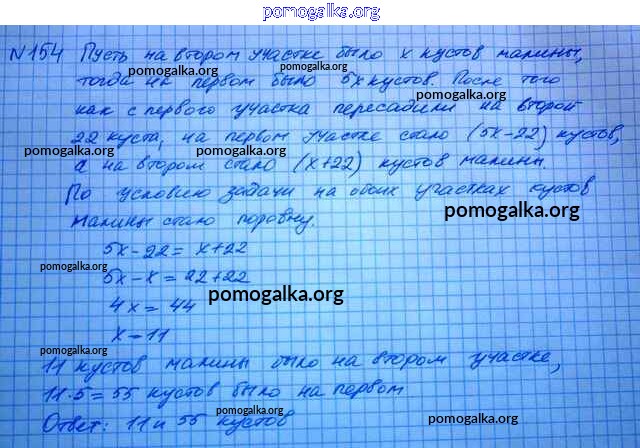 pomogalka.org
N154 Пусть на втором участке было x кустов малины,
pomogalka.org pomogalka.org
тогда на первом было 5x кустов. После того
pomogalka.org
как с первого участка пересадили на второй
22 куста, на первом участке стало (5x-22) кустов,
pomogalka.org pomogalka.org
а на втором стало (x+22) кустов малины
По условию задачи на обоих участках кустов
pomogalka.org
малины стало поровну.
5x-22=x+22
pomogalka.org
5x-x=22+22
pomogalka.org
4x=44
x=11
pomogalka.org
11 кустов малины было на втором участке,
11·5=55 кустов было на первом
pomogalka.org
Ответ: 11 и 55 кустов
pomogalka.org